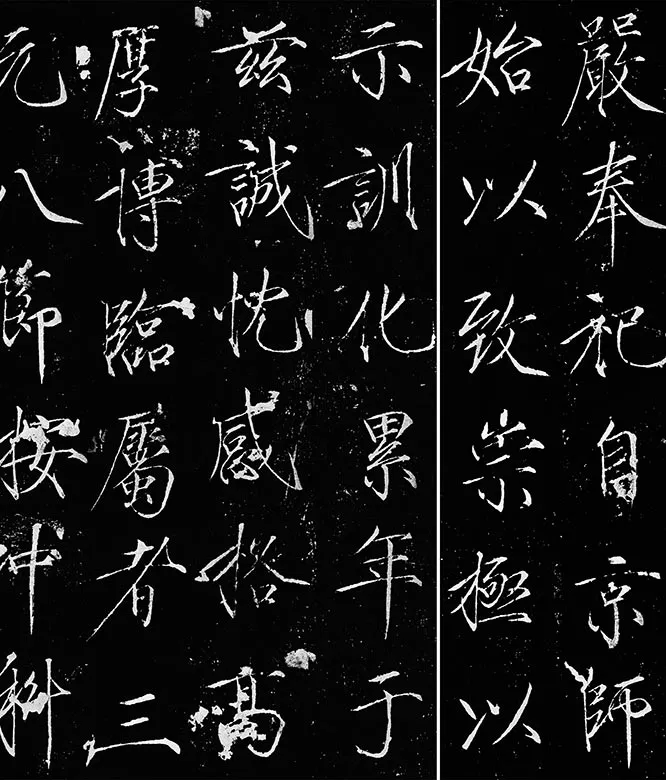 嚴奉祀自京師
始以致崇極以
示訓化累年于
茲誠忱感格高
厚博臨屬者三
元八節按沖科